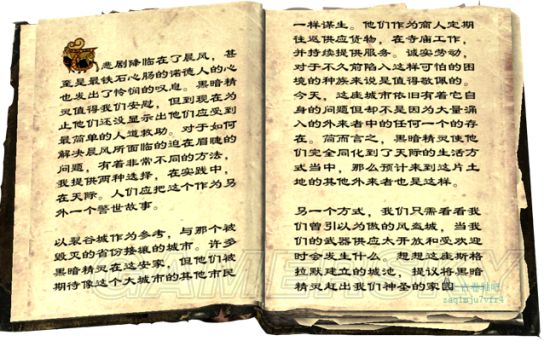 悲剧降临在了晨风，甚
至是最铁石心肠的诺德人的心
也发出了怜悯的叹息。黑暗精
灵值得我们安慰，但到现在为
止他们还没显示出他们应受到
最简单的人道救助。对于如何
解决晨风所面临的迫在眉睫的
问题，有着非常不同的方法，
我提供两种选择，在实践中，
在天际。人们应把这个作为另
外一个警世故事。
以裂谷城作为参考，与那个被
毁灭的省份接壤的城市。许多
黑暗精灵在这安家，但他们被
期待像这个大城市的其他市民
一样谋生。他们作为商人定期
往返供应货物，在寺庙工作，
并持续提供服务。诚实劳动，
对于不久前陷入这样可怕的困
境的种族来说是值得敬佩的。
今天，这座城市依旧有着它自
身的问题但却不是因为大量涌
入的外来者中的任何一个的存
在。简而言之，黑暗精灵使他
们完全同化到了天际的生活方
式当中，那么预计来到这片土
地的其他外来者也是这样。
另一个方式，我们只需看看我
们曾引以为傲的风盔城，当我
们的武器供应太开放和受欢迎
时会发生什么 想想这座斯格
拉默建立的城池，提议将黑暗
精灵赶出我们神圣的家园
GAMERSKY
zaqtmju7vfr4